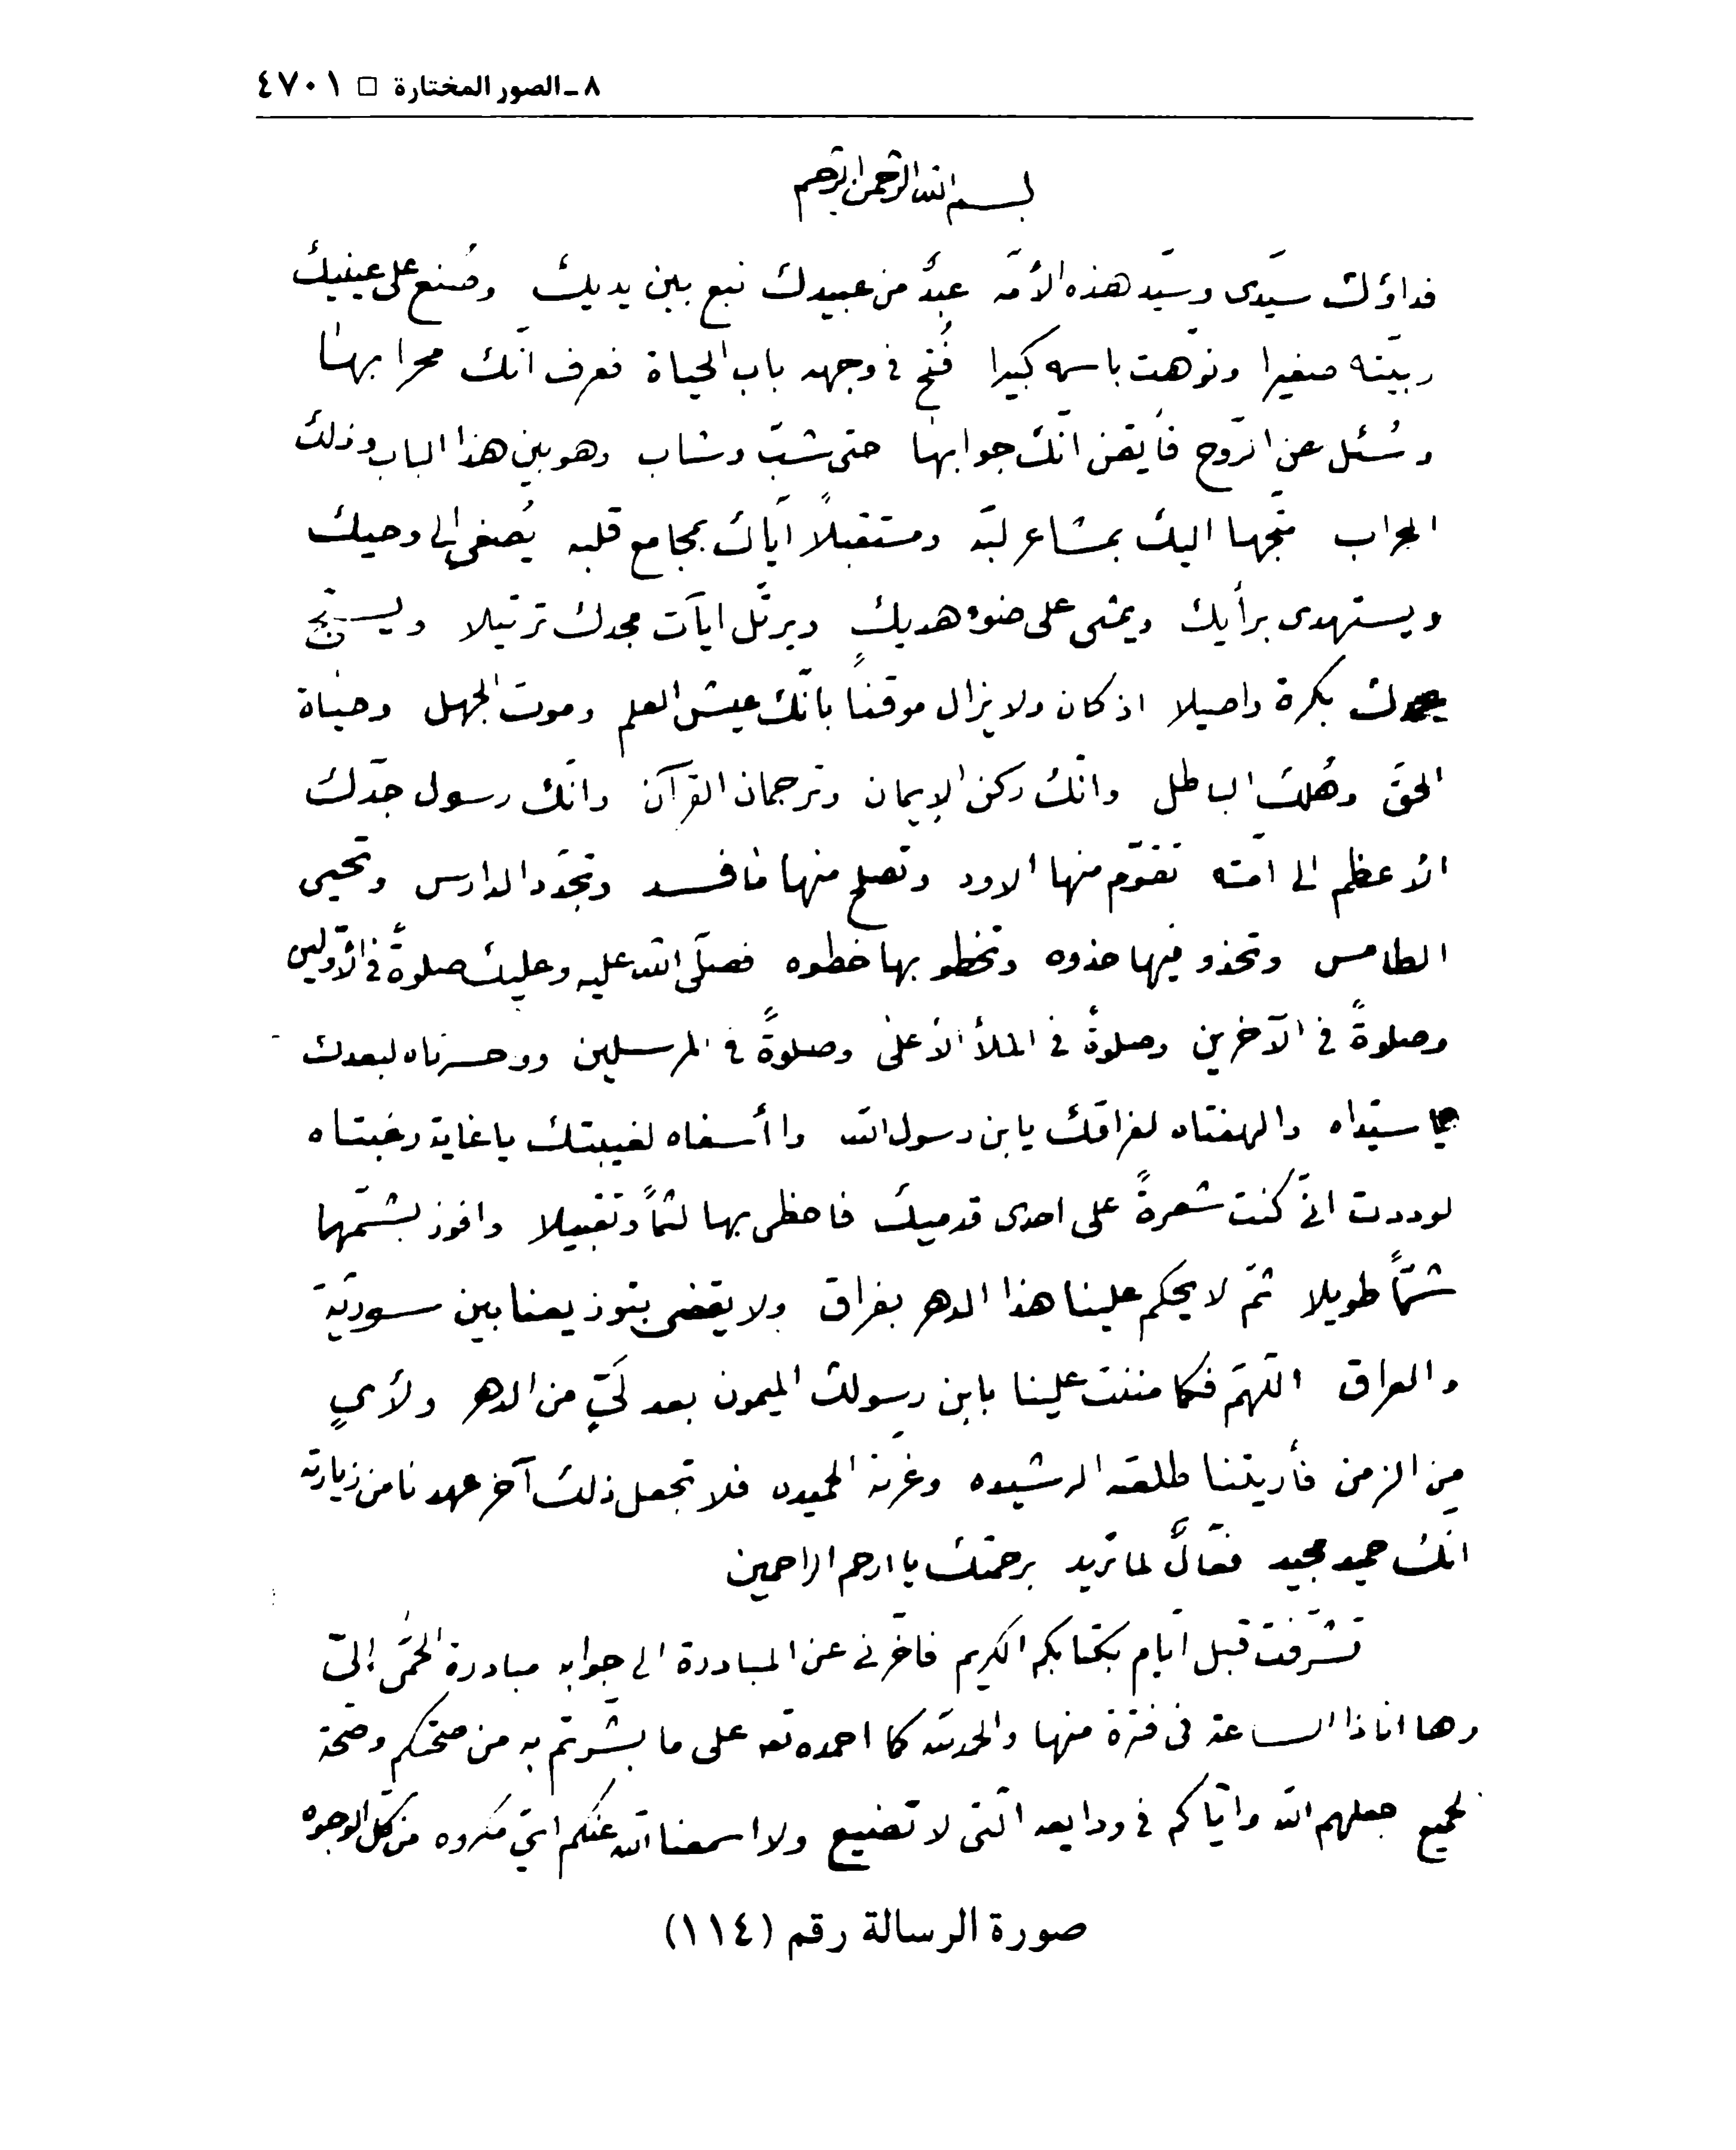 ٨ ـ الصور المختارة □ ٤٧٠١
بسم الله الرحمن الرحيم
فداؤك سيّدى وسيّد هذه الأمّة عبدٌ من عبيدك نبع بين يديك وصُنع على عينيك
ربيّته صغيرا ونوّهت باسمه كبيرا فُتح فى وجهه باب الحياة فعرف انّك محرابها
وسُئل عن الرّوح فأيقن انّك جوابها حتى شبّ وشاب وهو بين هذا الباب وذلك
المحراب متّجها اليك بمشاعر لبّه ومستقبلاً ايّاك بمجامع قلبه يُصغى الى وحيك
ويستهدى برأيك ويمشى على ضوء هديك ويرتّل ايآت مجدك ترتيلا ويسبّح
بحمدك بكرة واصيلا اذ كان ولا يزال موقناً بانّك عيش العلم وموت الجهل وحياة
الحقّ وهُلك الباطل وانّك ركن الإيمان وترجمان القرآن وانّك رسول جدّك
الأعظم الى امّته تقوّم منها الاود وتصلح منها ما فسد وتجدّد الدارس وتحيى
الطامس وتحذو فيها حذوه وتخطو بها خطوه فصلّى الله عليه وعليك صلوةً فى الأوّلين
وصلوةً فى الآخرين وصلوةً فى الملأ الأعلى وصلوةً فى المرسلين ووحسرتاه لبعدك
يا سيّداه والهفتاه لفراقك يابن رسول الله وا أسفاه لغيبتك يا غاية رغبتاه
لوددت انّى كنت شعرةً على احدى قدميك فاحظى بها لثماً وتقبيلا وافوز بشمّها
شمّاً طويلا ثمّ لا يحكم علينا هذا الدهر بفراق ولا يقضى بتوزيعنا بين سوريّة
والعراق اللّهمّ فكما مننت علينا بابن رسولك الميمون بعد لَيّ من الدهر ولأيٍ
من الزمن فأريتنا طلعته الرشيده وغرّته الحميده فلا تجعل ذلك آخر عهدنا من زيارته
انّك حميد مجيد فعّالٌ لما تريد برحمتك يا ارحم الراحمين
تشرّفت قبل ايّام بكتابكم الكريم فاخّرنى عن المبادرة الى جوابه مبادرة الحمّى إليّ
وها انا ذا الساعة فى فترة منها والحمدلله كما احمده تعه على ما بشّرتم به من صحّتكم وصحّة
الجميع جعلهم الله وايّاكم فى ودايعه الّتى لا تضيع ولا اسمعنا الله عنكم ايّ مكروه من كل الوجوه
صورة الرسالة رقم (١١٤)